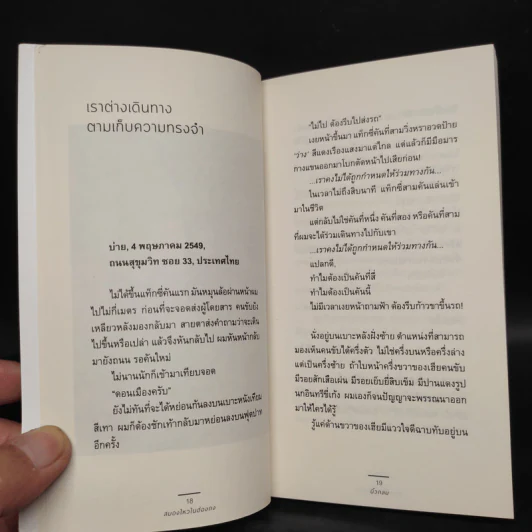 เราต่างเดินทาง
ตามเก็บความทรงจำ
บ่าย, 4 พฤษภาคม 2549,
ถนนสุขุมวิท ซอย 33, ประเทศไทย
ไม่ได้ขึ้นแท็กซี่คันแรก มันหมุนล้อผ่านหน้าผม
ไปไม่กี่เมตร ก่อนที่จะจอดส่งผู้โดยสาร คนขับยัง
เหลียวหลังมองกลับมา สายตาส่งคำถามว่าจะเดิน
ไปขึ้นหรือเปล่า แล้วจึงหันกลับไป ผมหันหน้ากลับ
มายังถนน รอคันใหม่
ไม่นานนักก็เข้ามาเทียบจอด
“ดอนเมืองครับ”
ยังไม่ทันที่จะได้หย่อนก้นลงบนเบาะหนังเทียม
สีเทา ผมก็ต้องชักเท้ากลับมาหย่อนลงบนฟุตปาท
อีกครั้ง
18
“ไม่ไป ต้องรีบไปส่งรถ”
เงยหน้าขึ้นมา แท็กซี่คันที่สามวิ่งหราอวดป้าย
‘ว่าง’ สีแดงเรืองแสงมาแต่ไกล แต่แล้วก็มีมือมาร
กางแขนออกมาโบกตัดหน้าไปเสียก่อน!
...เราคงไม่ได้ถูกกำหนดให้ร่วมทางกัน...
ในเวลาไม่ถึงสิบนาที แท็กซี่สามคันแล่นเข้า
มาในชีวิต
แต่กลับไม่ใช่คันที่หนึ่ง คันที่สอง หรือคันที่สาม
ที่ผมจะได้ร่วมเดินทางไปกับเขา
...เราคงไม่ได้ถูกกำหนดให้ร่วมทางกัน...
แปลกดี,
ทำไมต้องเป็นคันที่สี่
ทำไมต้องเป็นคันนี้
ไม่มีเวลาเงยหน้าถามฟ้า ต้องรีบก้าวขาขึ้นรถ!
นั่งอยู่บนเบาะหลังฝั่งซ้าย ตำแหน่งที่สามารถ
มองเห็นคนขับได้ครึ่งตัว ไม่ใช่ครึ่งบนหรือครึ่งล่าง
แต่เป็นครึ่งซ้าย ถ้าใบหน้าครึ่งขวาของเฮียคนขับ
มีรอยสักเสือเผ่น มีรอยเย็บยี่สิบเข็ม มีปานแดงรูป
นกอินทรีขี่เก้ง ผมเองก็จนปัญญาจะพรรณนาออก
มาให้ใครได้รู้
รู้แค่ด้านขวาของเฮียมีแววใจดีฉาบทับอยู่บน
19